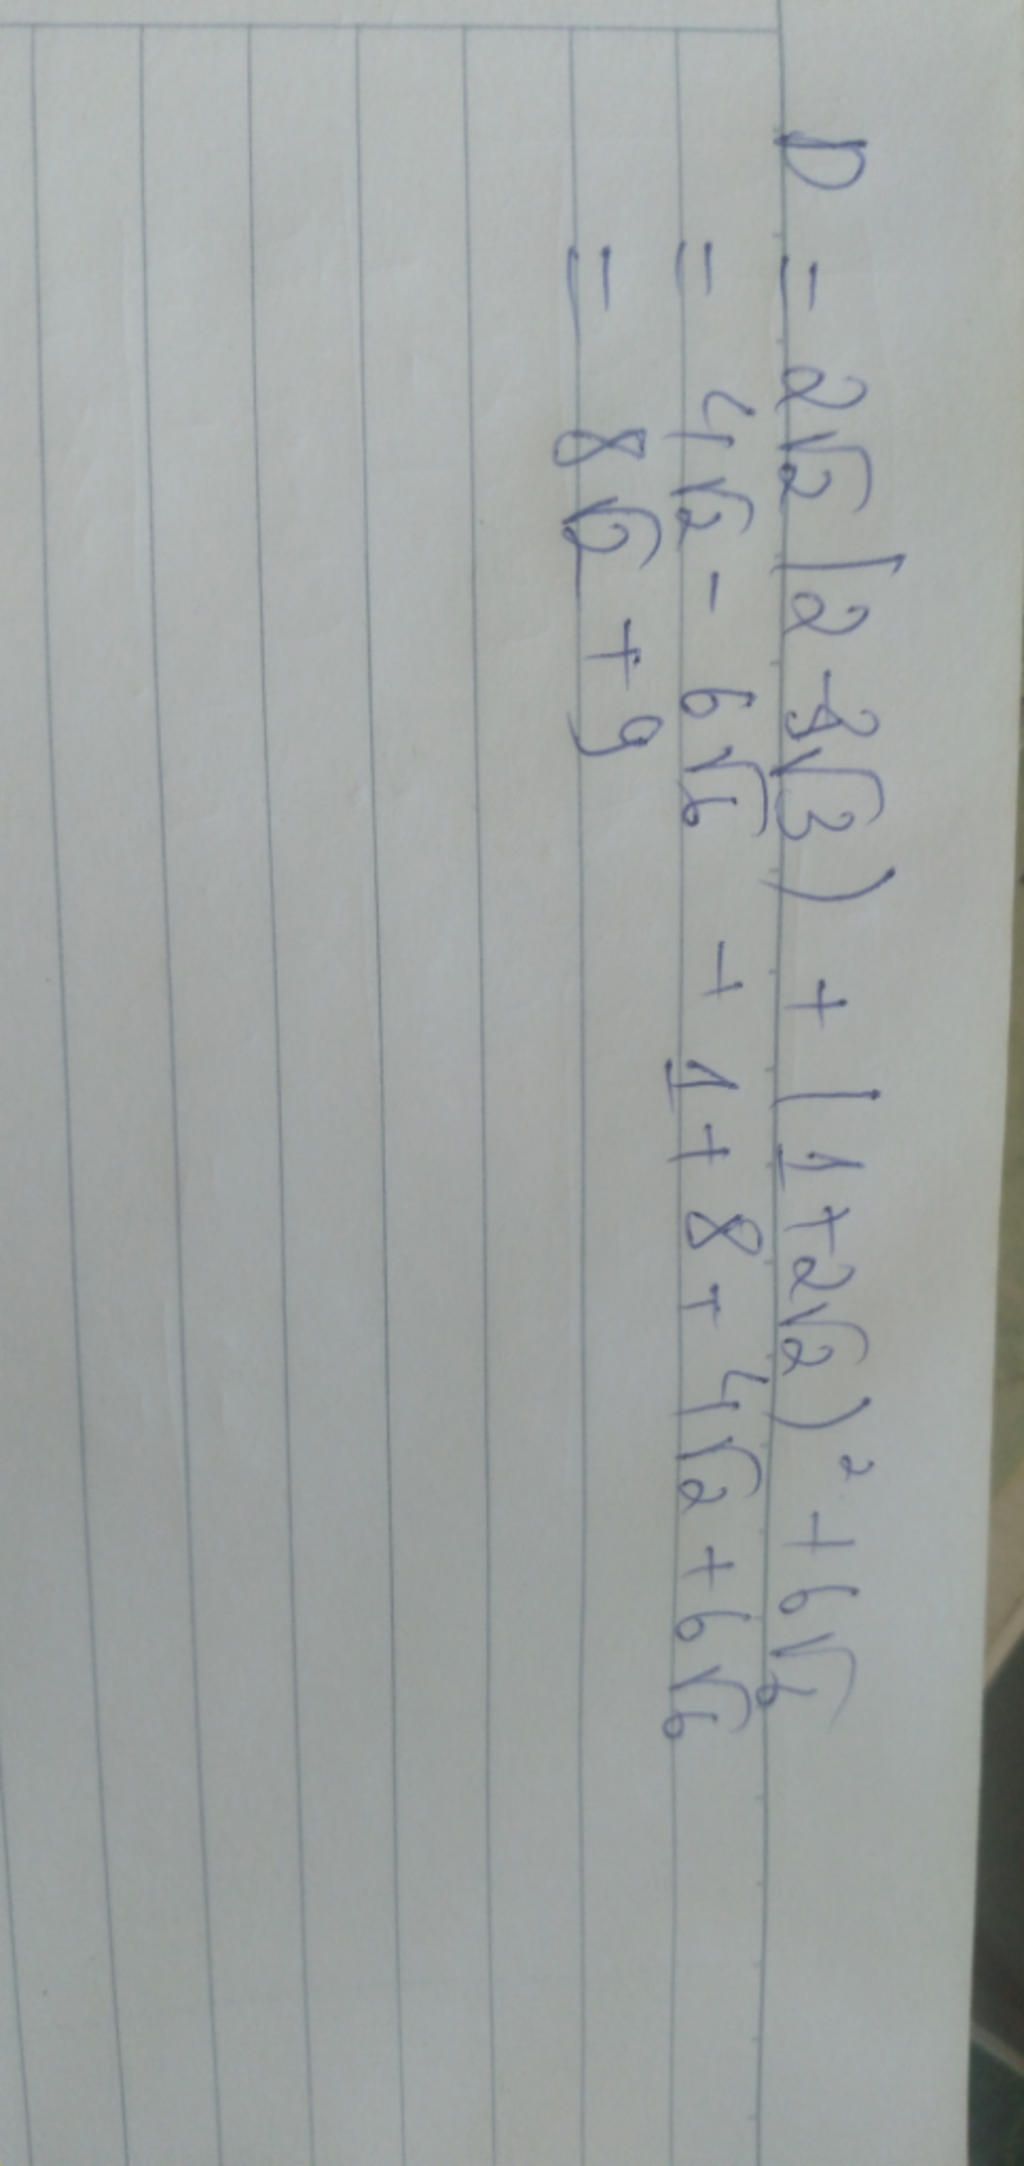 D = 2√2 (2 - 3√3) + (1 + 2√2)² + 6√6
= 4√2 - 6√6 + 1 + 8 + 4√2 + 6√6
= 8√2 + 9